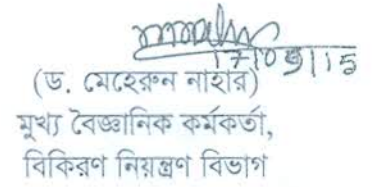 17/09/15
(ড. মেহেরুন নাহার)
মুখ্য বৈজ্ঞানিক কর্মকর্তা,
বিকিরণ নিয়ন্ত্রণ বিভাগ